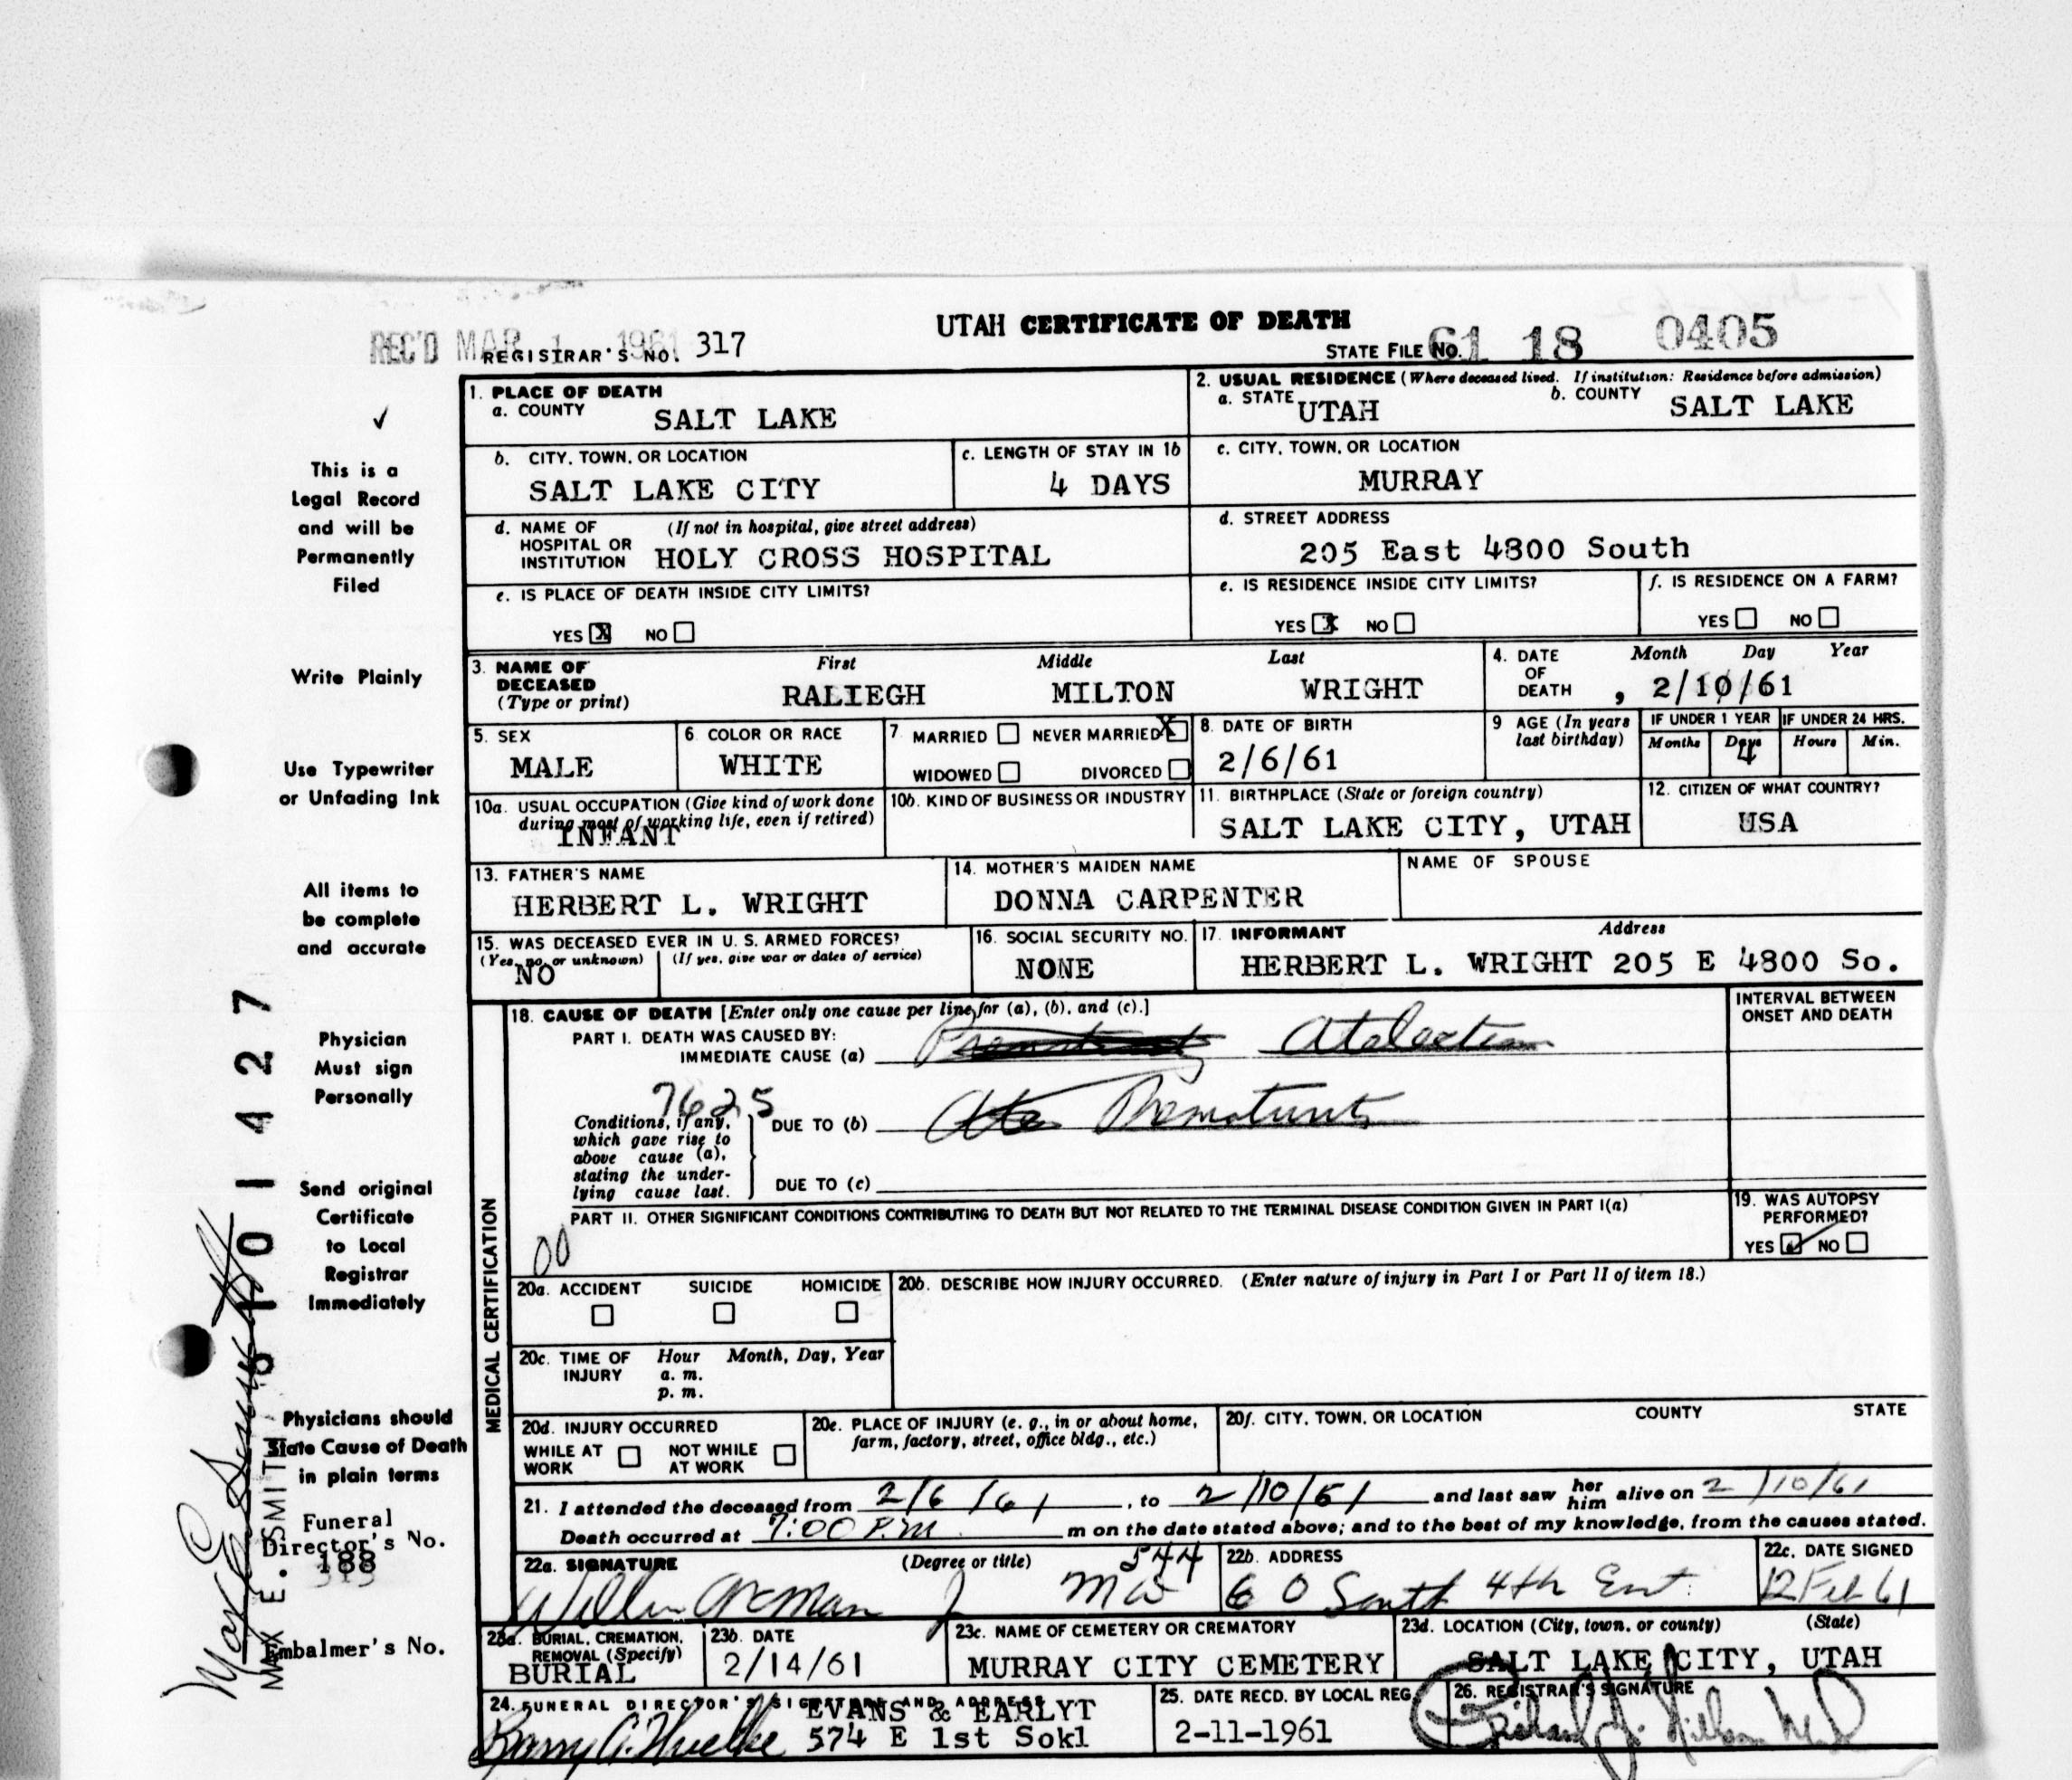 UTAH CERTIFICATE OF DEATH
REC'D MAR 1 1961
REGISTRAR'S NO. 317
STATE FILE NO. 61 18 0405
1. PLACE OF DEATH
a. COUNTY SALT LAKE
2. USUAL RESIDENCE (Where deceased lived. If institution: Residence before admission)
a. STATE UTAH b. COUNTY SALT LAKE
b. CITY, TOWN, OR LOCATION
SALT LAKE CITY
c. LENGTH OF STAY IN 1b
4 DAYS
c. CITY, TOWN, OR LOCATION
MURRAY
d. NAME OF HOSPITAL OR INSTITUTION (If not in hospital, give street address)
HOLY CROSS HOSPITAL
d. STREET ADDRESS
205 East 4800 South
e. IS PLACE OF DEATH INSIDE CITY LIMITS?
YES X NO
e. IS RESIDENCE INSIDE CITY LIMITS?
YES X NO
f. IS RESIDENCE ON A FARM?
YES NO
3. NAME OF DECEASED (Type or print)
First Middle Last
RALIEGH MILTON WRIGHT
4. DATE OF DEATH Month Day Year
, 2/10/61
5. SEX
MALE
6. COLOR OR RACE
WHITE
7. MARRIED NEVER MARRIED X
WIDOWED DIVORCED
8. DATE OF BIRTH
2/6/61
9 AGE (In years last birthday)
IF UNDER 1 YEAR IF UNDER 24 HRS.
Months Days Hours Min.
4
10a. USUAL OCCUPATION (Give kind of work done during most of working life, even if retired)
INFANT
10b. KIND OF BUSINESS OR INDUSTRY
11. BIRTHPLACE (State or foreign country)
SALT LAKE CITY, UTAH
12. CITIZEN OF WHAT COUNTRY?
USA
13. FATHER'S NAME
HERBERT L. WRIGHT
14. MOTHER'S MAIDEN NAME
DONNA CARPENTER
NAME OF SPOUSE
15. WAS DECEASED EVER IN U. S. ARMED FORCES?
(Yes, no, or unknown) (If yes, give war or dates of service)
NO
16. SOCIAL SECURITY NO.
NONE
17. INFORMANT Address
HERBERT L. WRIGHT 205 E 4800 So.
MEDICAL CERTIFICATION
18. CAUSE OF DEATH [Enter only one cause per line for (a), (b), and (c).]
PART I. DEATH WAS CAUSED BY:
IMMEDIATE CAUSE (a) Prematurity Atelectasis
INTERVAL BETWEEN ONSET AND DEATH
7625
Conditions, if any, which gave rise to above cause (a), stating the underlying cause last.
DUE TO (b) Ate Prematurity
DUE TO (c)
PART II. OTHER SIGNIFICANT CONDITIONS CONTRIBUTING TO DEATH BUT NOT RELATED TO THE TERMINAL DISEASE CONDITION GIVEN IN PART I(a)
00
19. WAS AUTOPSY PERFORMED?
YES ✓ NO
20a. ACCIDENT SUICIDE HOMICIDE
20b. DESCRIBE HOW INJURY OCCURRED. (Enter nature of injury in Part I or Part II of item 18.)
20c. TIME OF INJURY Hour Month, Day, Year
a. m.
p. m.
20d. INJURY OCCURRED
WHILE AT WORK NOT WHILE AT WORK
20e. PLACE OF INJURY (e. g., in or about home, farm, factory, street, office bldg., etc.)
20f. CITY, TOWN, OR LOCATION COUNTY STATE
21. I attended the deceased from 2/6/61, to 2/10/61 and last saw her him alive on 2/10/61
Death occurred at 7:00 P.M. m on the date stated above; and to the best of my knowledge, from the causes stated.
22a. SIGNATURE (Degree or title) 544
MD
22b. ADDRESS
60 South 4th East
22c. DATE SIGNED
12 Feb 61
23a. BURIAL, CREMATION, REMOVAL (Specify)
BURIAL
23b. DATE
2/14/61
23c. NAME OF CEMETERY OR CREMATORY
MURRAY CITY CEMETERY
23d. LOCATION (City, town, or county) (State)
SALT LAKE CITY, UTAH
24. FUNERAL DIRECTOR'S SIGNATURE AND ADDRESS
EVANS & EARLYT
574 E 1st Sokl
25. DATE RECD. BY LOCAL REG.
2-11-1961
26. REGISTRAR'S SIGNATURE
✓
This is a
Legal Record
and will be
Permanently
Filed
Write Plainly
Use Typewriter
or Unfading Ink
All items to
be complete
and accurate
Physician
Must sign
Personally
Send original
Certificate
to Local
Registrar
Immediately
Physicians should
State Cause of Death
in plain terms
Funeral
Director's No.
188
Embalmer's No.
MAX E. SMITH
Max E. Smith